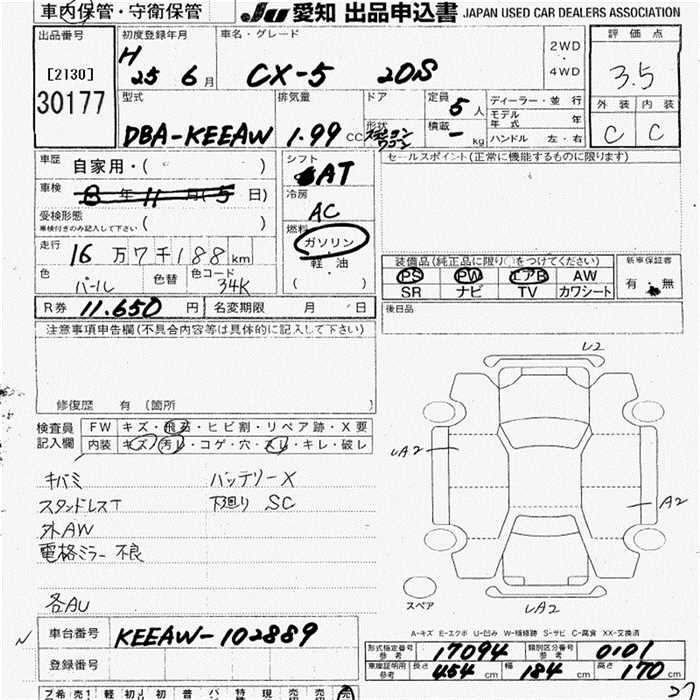 車内保管・守衛保管
JU 愛知 出品申込書 JAPAN USED CAR DEALERS ASSOCIATION
出品番号
[2130]
30177
初度登録年月
H 25 6月
車名・グレード
CX-5 20S
2WD
4WD
評価点
3.5
外装 内装
C C
型式
DBA-KEEAW
排気量
1.99 CC
ドア
形状
定員
5人
積載
- kg
ディーラー・並行
モデル年式 年
ハンドル 左・右
車歴
自家用・( )
車検
8年11月(5日)
受検形態
車検付きのみ記入して下さい ( )
走行
16万7千188km
色
パール
色替
色コード
34K
シフト
AT
冷房
AC
燃料
ガソリン
軽・油
( )
セールスポイント(正常に機能するものに限ります)
装備品(純正品に限り○をつけてください)
PS PW エアB AW
SR ナビ TV カワシート
新車保証書
有・無
R券 11.650円
名変期限 月 日
後日品
注意事項申告欄(不具合内容等は具体的に記入して下さい)
修復歴 有 〔箇所 〕
検査員記入欄
FW キズ・飛石・ヒビ割・リペア跡・X要
内装 キズ・汚レ・コゲ・穴・スレ・キレ・破レ
キバミ バッテリーX
スタンドレスT 下廻り SC
外AW
電格ミラー 不良
各AU
U2
UA2
A2
UA2
スペア
A-キズ E-エクボ U-凹み W-補修跡 S-サビ C-腐食 XX-交換済
車台番号
KEEAW-102889
登録番号
形式指定番号参考 17094
類別区分番号参考 0101
車庫証明用参考 長さ 454cm 幅 184cm 高さ 170cm